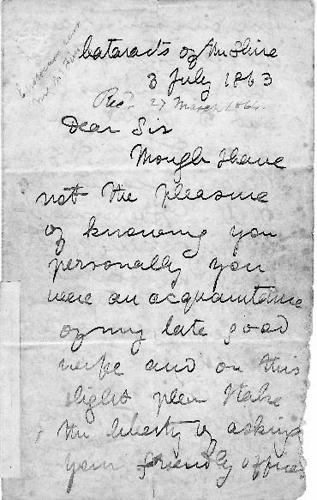 Cataracts of the Shire
3 July 1863
Recd 27 March 1864.
Dear Sir
Though I have
not the pleasure
of knowing you
personally you
were an acquaintance
of my late good
wife and on this
slight plea I take
the liberty of asking
your friendly offices